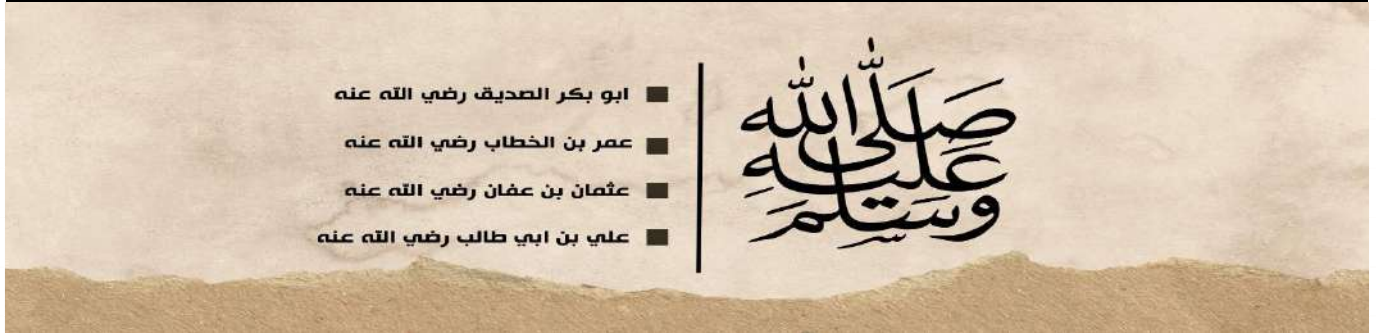 صَلَّى اللّٰه
عَلَيْهِ
وَسَلَّمَ
ابو بكر الصديق رضي الله عنه
عمر بن الخطاب رضي الله عنه
عثمان بن عفان رضي الله عنه
علي بن ابي طالب رضي الله عنه